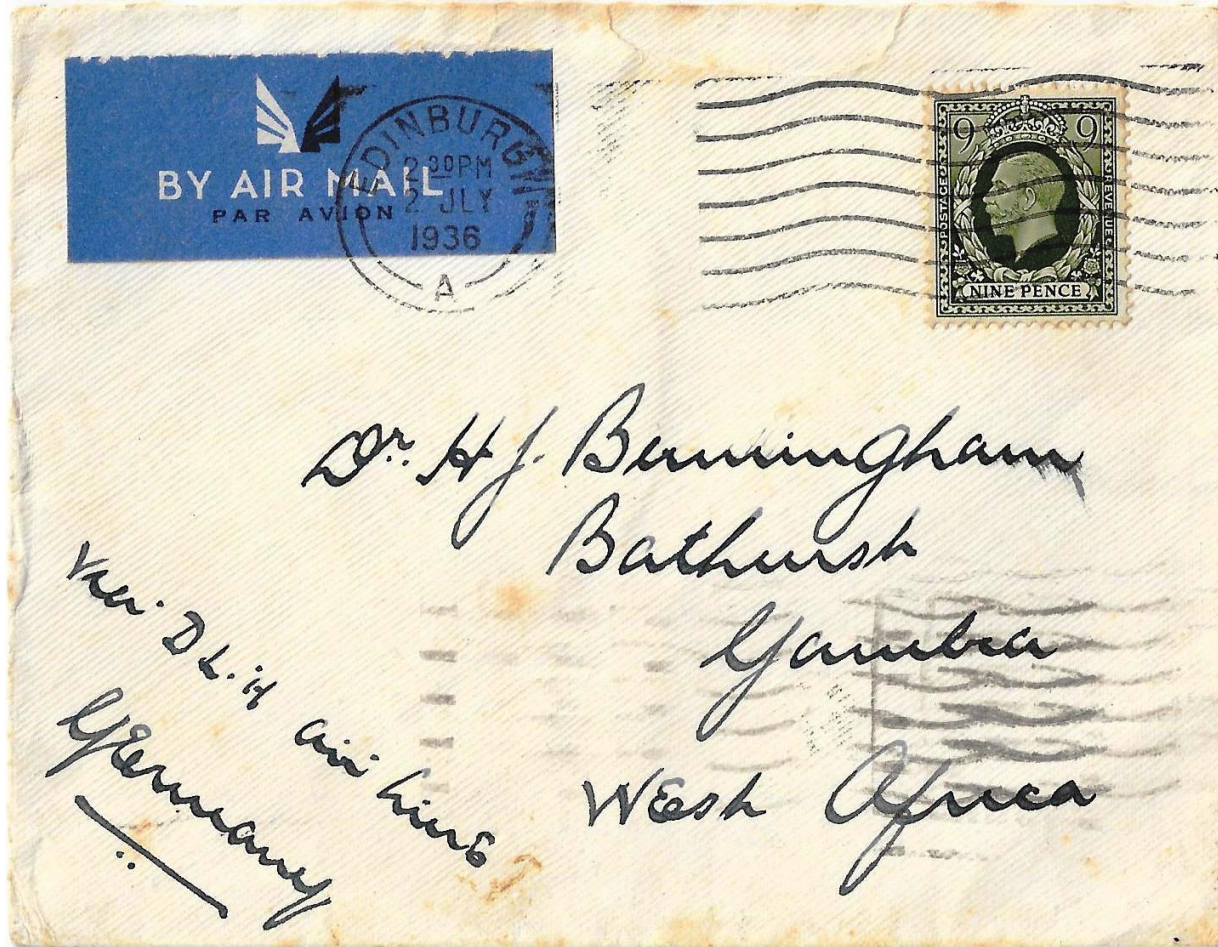 BY AIR MAIL
PAR AVION
EDINBURGH
2 30PM
2 JLY
1936
A
9 9
POSTAGE REVENUE
NINE PENCE
Dr. H J. Bermingham
Bathurst
Gambia
West Africa
D L. H
air Line
Germany